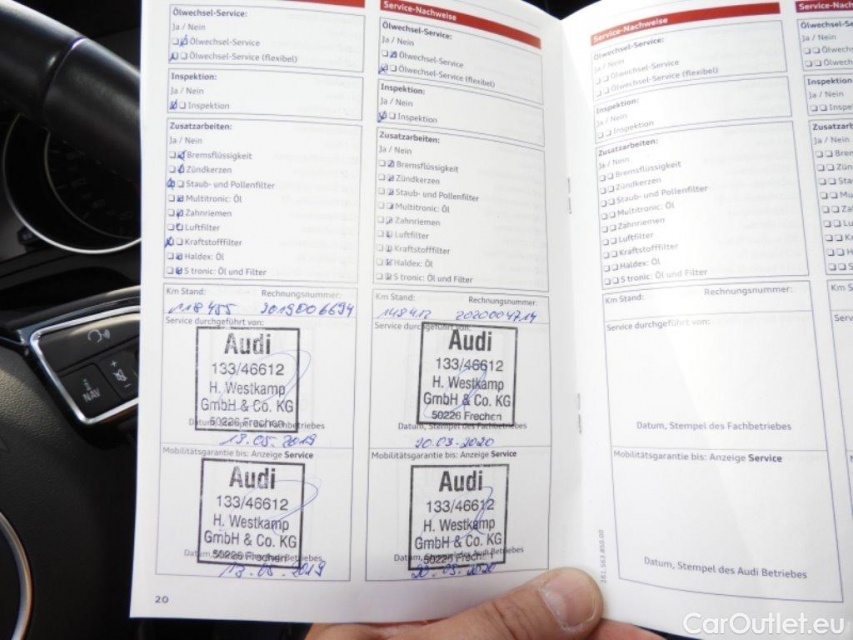 Service-Nachweise
Ölwechsel-Service:
Ja / Nein
Ölwechsel-Service
Ölwechsel-Service (flexibel)
Inspektion:
Ja / Nein
Inspektion
Zusatzarbeiten:
Ja / Nein
Bremsflüssigkeit
Zündkerzen
Staub- und Pollenfilter
Multitronic: Öl
Zahnriemen
Luftfilter
Kraftstofffilter
Haldex: Öl
S tronic: Öl und Filter
Km Stand: Rechnungsnummer:
118 455 2019006694
Service durchgeführt von:
Audi
133/46612
H. Westkamp
GmbH & Co. KG
50226 Frechen
Datum, Stempel des Fachbetriebes
13.05.2019
Mobilitätsgarantie bis: Anzeige Service
Audi
133/46612
H. Westkamp
GmbH & Co. KG
50226 Frechen
Datum, Stempel des Audi Betriebes
13.05.2019
20
Service-Nachweise
Ölwechsel-Service:
Ja / Nein
Ölwechsel-Service
Ölwechsel-Service (flexibel)
Inspektion:
Ja / Nein
Inspektion
Zusatzarbeiten:
Ja / Nein
Bremsflüssigkeit
Zündkerzen
Staub- und Pollenfilter
Multitronic: Öl
Zahnriemen
Luftfilter
Kraftstofffilter
Haldex: Öl
S tronic: Öl und Filter
Km Stand: Rechnungsnummer:
148412 2020004714
Service durchgeführt von:
Audi
133/46612
H. Westkamp
GmbH & Co. KG
50226 Frechen
Datum, Stempel des Fachbetriebes
20.03.2020
Mobilitätsgarantie bis: Anzeige Service
Audi
133/46612
H. Westkamp
GmbH & Co. KG
50226 Frechen
Datum, Stempel des Audi Betriebes
20.03.2020
Service-Nachweise
Ölwechsel-Service:
Ja / Nein
Ölwechsel-Service
Ölwechsel-Service (flexibel)
Inspektion:
Ja / Nein
Inspektion
Zusatzarbeiten:
Ja / Nein
Bremsflüssigkeit
Zündkerzen
Staub- und Pollenfilter
Multitronic: Öl
Zahnriemen
Luftfilter
Kraftstofffilter
Haldex: Öl
S tronic: Öl und Filter
Km Stand: Rechnungsnummer:
Service durchgeführt von:
Datum, Stempel des Fachbetriebes
Mobilitätsgarantie bis: Anzeige Service
Datum, Stempel des Audi Betriebes
NAV
CarOutlet.eu